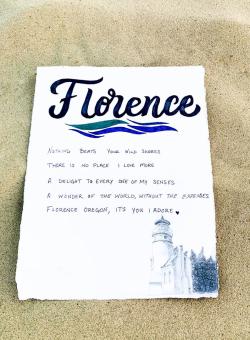 Florence
NOTHING BEATS YOUR WILD SHORES
THERE IS NO PLACE I LOVE MORE
A DELIGHT TO EVERY ONE OF MY SENSES
A WONDER OF THE WORLD, WITHOUT THE EXPENSES
FLORENCE OREGON, IT'S YOU I ADORE ♥